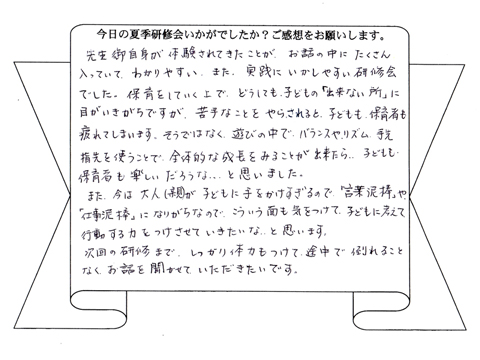 今日の夏季研修会いかがでしたか？ご感想をお願いします。
先生御自身が体験されてきたことが、お話の中にたくさん
入っていて、わかりやすい、また、実践にいかしやすい研修会
でした。保育をしていく上で、どうしても、子どもの「出来ない所」に
目がいきがちですが、苦手なことをやらされると、子どもも、保育者も
疲れてしまいます。そうではなく、遊びの中で、バランスや、リズム、手先、
指先を使うことで、全体的な成長をみることが出来たら…子どもも
保育者も楽しいだろうな…と思いました。
また、今は大人(親)が子どもに手をかけすぎるので、「言葉泥棒」や
「仕事泥棒」になりがちなので、こういう面も気をつけて、子どもに考えて
行動する力をつけさせていきたいな…と思います。
次回の研修まで、しっかり体力もつけて、途中で倒れること
なくお話を聞かせていただきたいです。